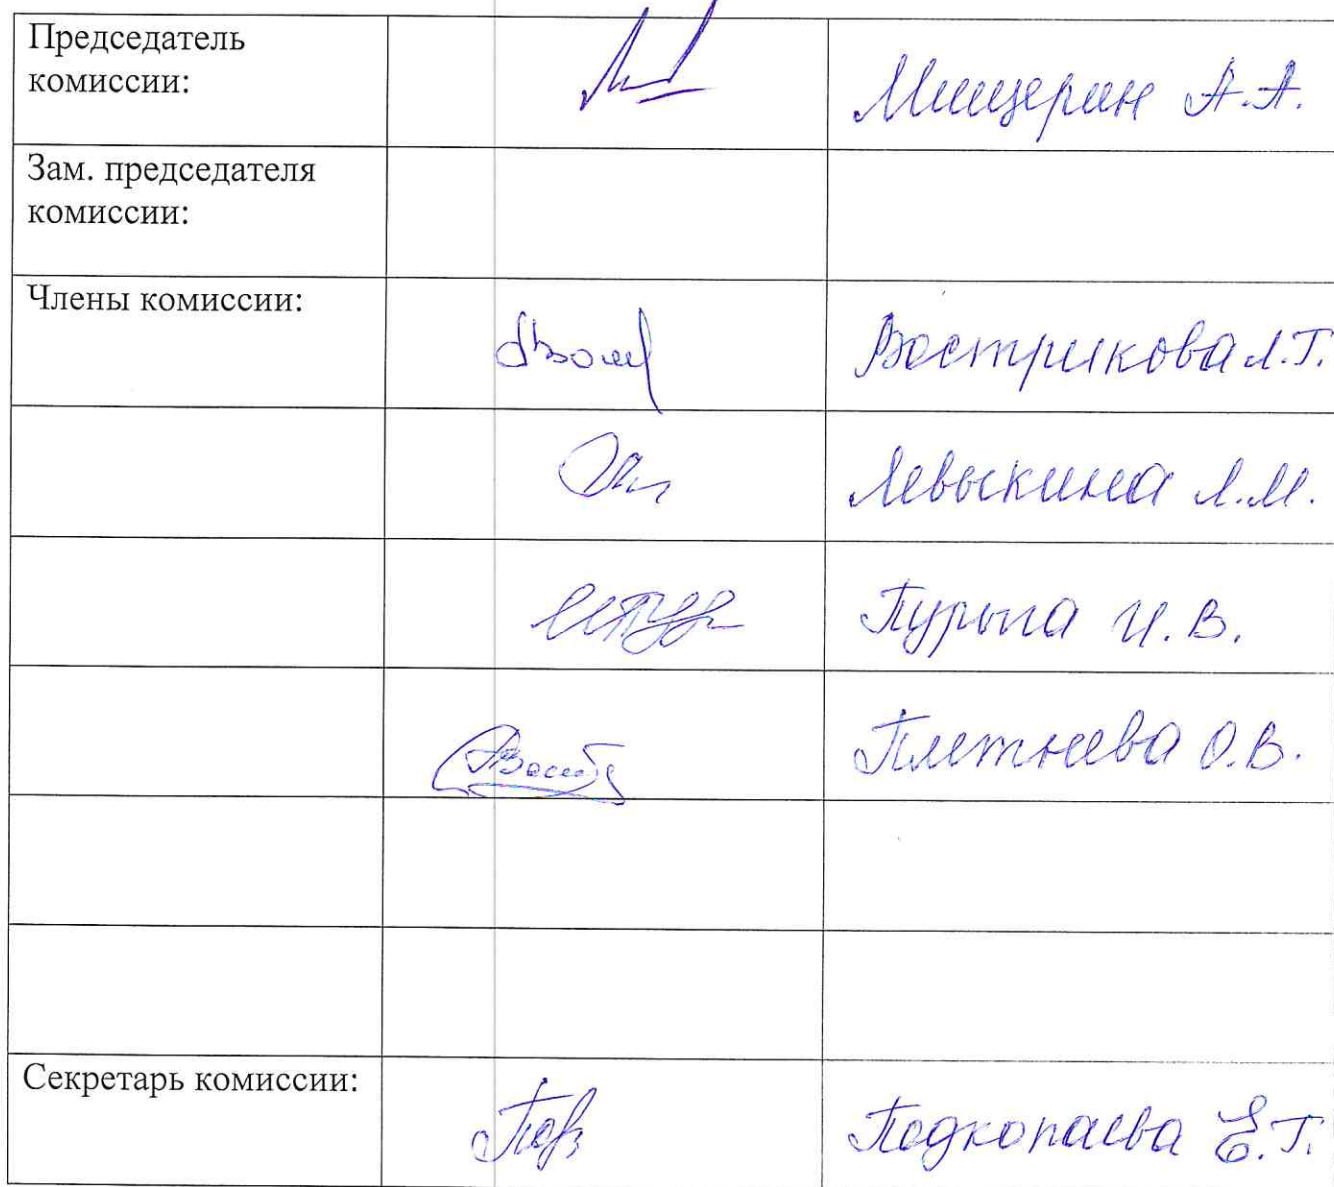 Председатель
комиссии:
Мищерин А.А.
Зам. председателя
комиссии:
Члены комиссии:
Вострикова Л.Г.
Левыкина Л.М.
Пурыга И.В.
Плетнева О.В.
Секретарь комиссии:
Подкопаева Е.Г.